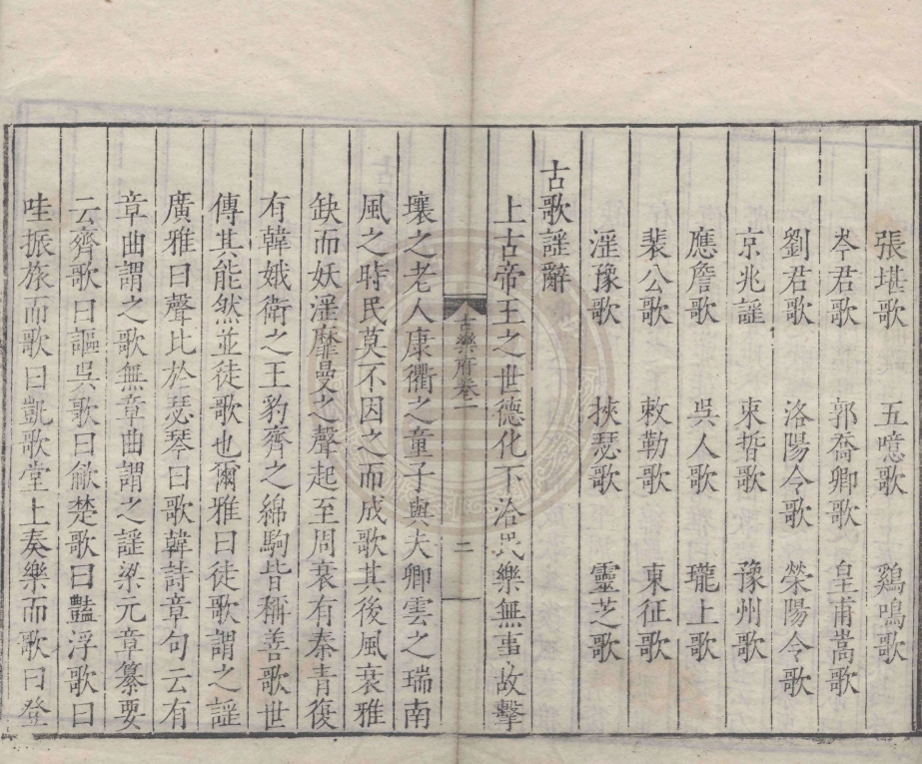 張堪歌 五噫歌 鷄鳴歌
岑君歌 郭喬卿歌 皇甫嵩歌
劉君歌 洛陽令歌 滎陽令歌
京兆謡 束晳歌 豫州歌
應詹歌 吳人歌 隴上歌
裴公歌 敕勒歌 東征歌
滛豫歌 挾瑟歌 靈芝歌
古歌謡辭
上古帝王之世德化下洽民樂無事故擊
古樂府卷一 二
壤之老人康衢之童子與夫卿雲之瑞南
風之時民莫不因之而成歌其後風衰雅
缺而妖滛靡曼之聲起至周衰有秦青復
有韓娥衛之王豹齊之綿駒皆稱善歌世
傳其能然並徒歌也爾雅曰徒歌謂之謡
廣雅曰聲比於瑟琴曰歌韓詩章句云有
章曲謂之歌無章曲謂之謡梁元章纂要
云齊歌曰謳吳歌曰歈楚歌曰豔浮歌曰
哇振旅而歌曰凱歌堂上奏樂而歌曰登